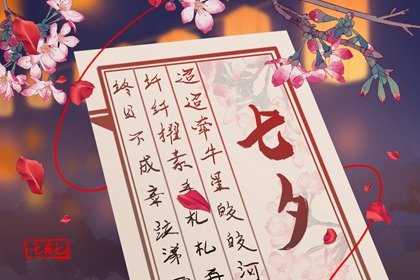 七夕
迢迢牵牛星皎皎河
纤纤擢素手札札弄
终日不成章泣涕
七月七